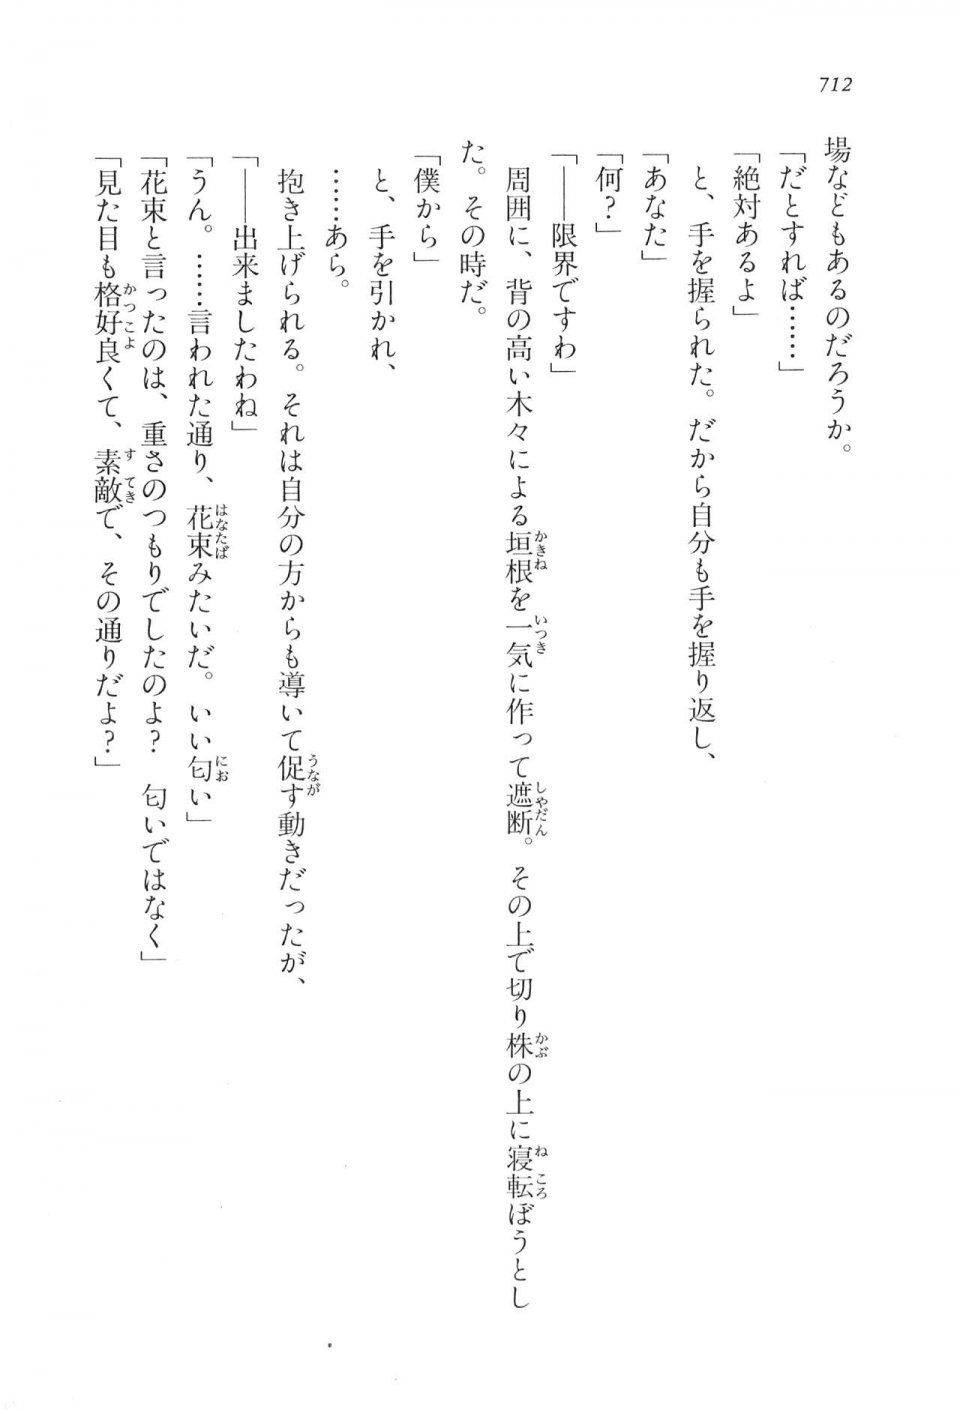 712
場などもあるのだろうか。
「だとすれば……」
「絶対あるよ」
と、手を握られた。だから自分も手を握り返し、
「あなた」
「何？」
「――限界ですわ」
周囲に、背の高い木々による垣根を一気に作って遮断。その上で切り株の上に寝転ぼうとし
た。その時だ。
「僕から」
と、手を引かれ、
……あら。
抱き上げられる。それは自分の方からも導いて促す動きだったが、
「――出来ましたわね」
「うん。……言われた通り、花束みたいだ。いい匂い」
「花束と言ったのは、重さのつもりでしたのよ？　匂いではなく」
「見た目も格好良くて、素敵で、その通りだよ？」